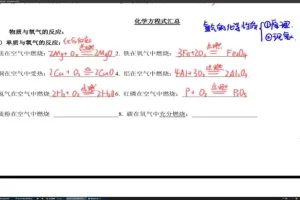 化学方程式汇总
物质与氧气的反应:
单质与氧气的反应:
在空气中燃烧 2Mg+O₂ 点燃 2MgO 2. 铁在氧气中燃烧: 3Fe+2O₂ 点燃 Fe₃O₄
在空气中 2Cu+O₂ 2CuO 4. 铝在空气中燃烧: 4Al+3O₂ 2Al₂O₃
气在空气中燃烧 2H₂+O₂ 点燃 2H₂O 6. 红磷在空气中燃烧: P+O₂ 点燃 P₂O₅
硫粉在空气中燃烧 8. 碳在氧气中充分燃烧: